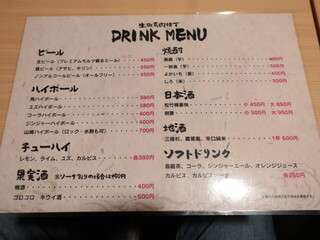 DRINK MENU
ビール
生ビール(プレミアムモルツ香るエール) 450円
瓶ビール(アサヒ、キリン) 550円
ノンアルコールビール(オールフリー) 350円
ハイボール
角ハイボール 380円
ユズハイボール 400円
コーラハイボール 400円
ジンジャーハイボール 400円
山崎ハイボール(ロック・水割も可) 700円
チューハイ
レモン、ライム、ユズ、カルピス 各380円
果実酒
梅酒 400円
ゴロゴロ キウイ酒 500円
焼酎
(芋)
一刻者(芋)
よかいち(麦) 400円
しろ(米) 500円
日本酒
松竹梅豪快 小 450円 大 850円
剣菱 小 500円 大 950円
地酒
三諸杉、辛口純米 1杯 600円
ソフトドリンク
烏龍茶、コーラ、ジンジャーエール、オレンジジュース
カルピス、カルピスソーダ 各250円